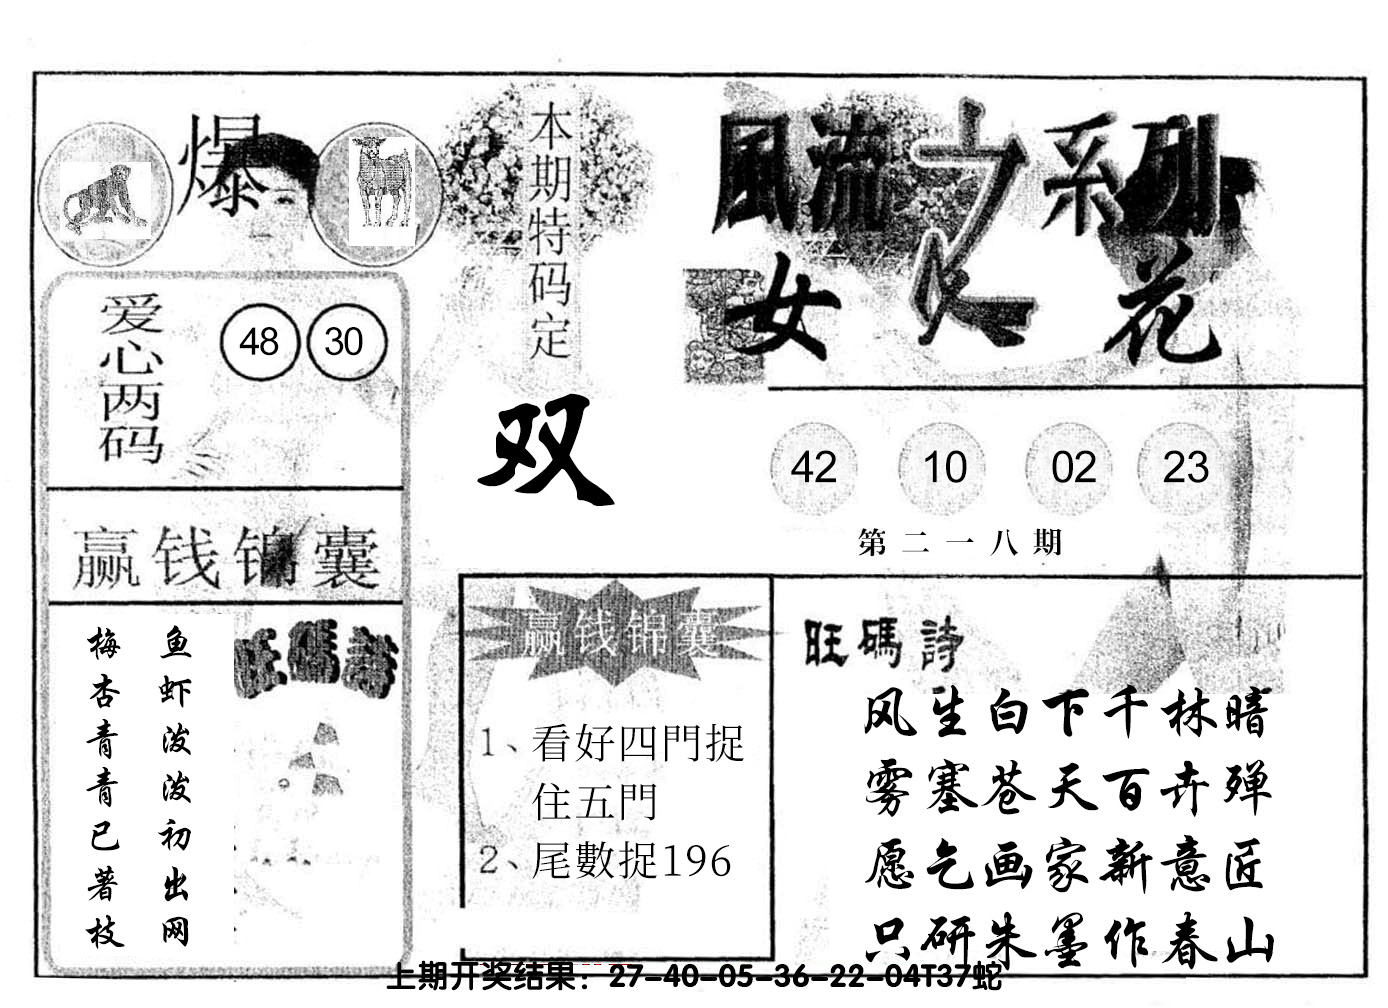 爆
本期特码定
双
風流之系列
女人花
爱心两码
48 30
42 10 02 23
第二一八期
赢钱锦囊
鱼虾泼泼初出网
梅杏青青已著枝
旺碼詩
赢钱锦囊
1、看好四門捉
住五門
2、尾數捉196
旺碼詩
风生白下千林暗
雾塞苍天百卉殚
愿乞画家新意匠
只研朱墨作春山
上期开奖结果：27-40-05-36-22-04T37蛇